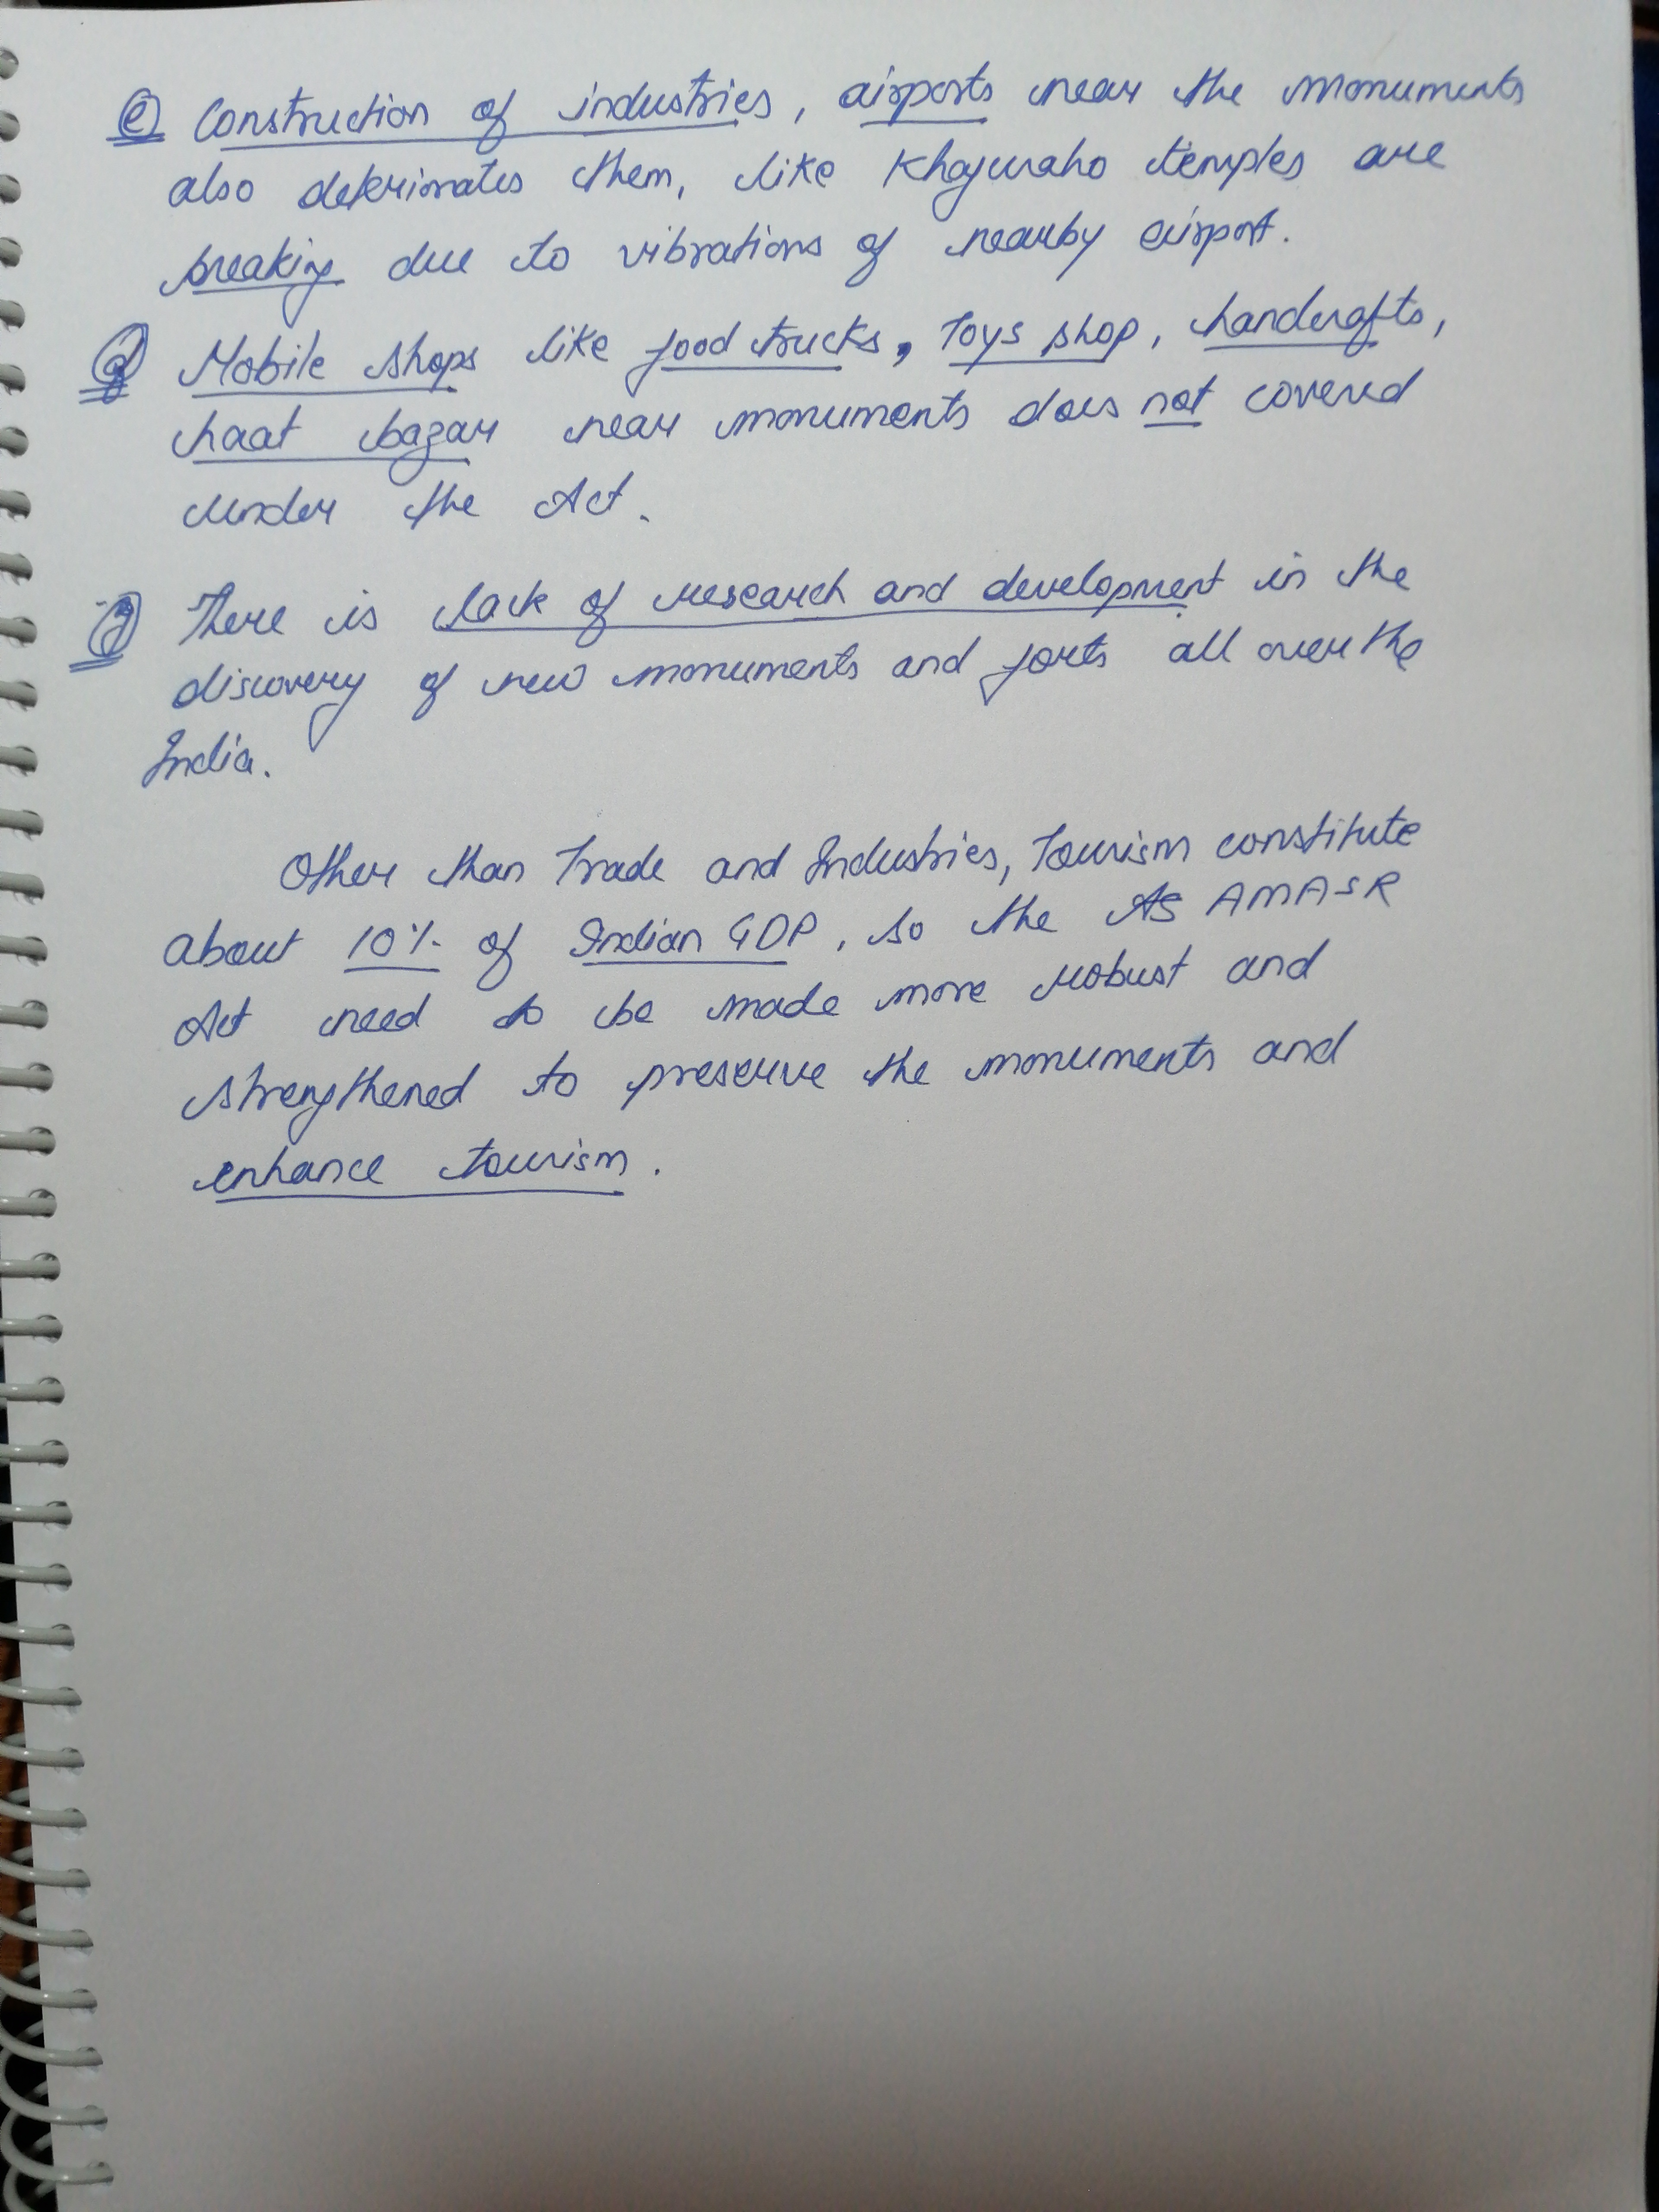 (c) Construction of industries, airports near the monuments
also deteriorates them, like Khajuraho temples are
breaking due to vibrations of nearby airport.
Mobile shops like food trucks, Toys shop, handcrafts,
haat bazar near monuments does not covered
under the Act.
There is lack of research and development in the
discovery of new monuments and forts all over the
India.
Other than Trade and Industries, Tourism constitute
about 10% of Indian GDP, so the AS AMASR
Act need to be made more robust and
strengthened to preserve the monuments and
enhance tourism.